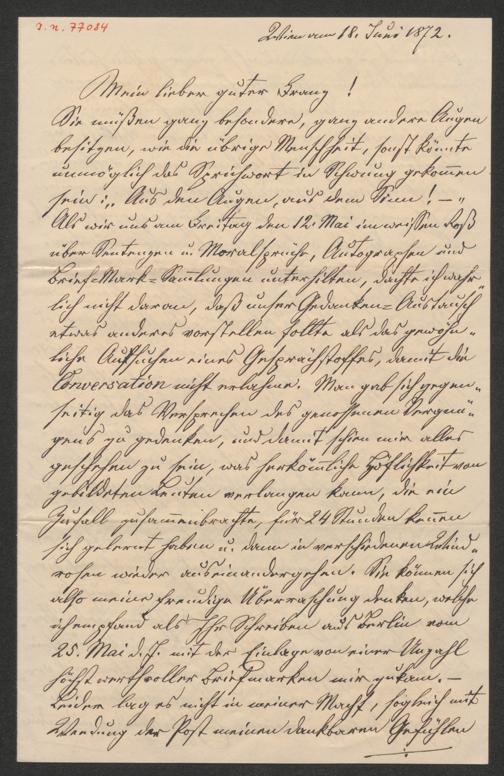 I. N. 77084
Wien am 18. Juni 1872.
Mein lieber guter Franz!
Sie müßen ganz besondere, ganz andere Augen
besitzen, wie die übrige Menschheit, sonst könnte
unmöglich das Sprüchwort in Schwung gekommen
sein: „Aus den Augen, aus dem Sinn! — "
Als wir uns am Freitag den 12. Mai im weissen Roß
über Sentenzen u Moralsprüche, Autographen und
Brief-Mark-Sammlungen unterhilten, dachte ich wahr„
lich nicht daran, daß unser Gedanken=Austausch
etwas anderes vorstellen sollte als das gewöhn„
liche Aufsuchen eines Gesprächstoffes, damit die
Conversation nicht erlahme. Man gab sich gegen„
seitig das Versprechen des genossenen Vergnü„
gens zu gedenken, und damit schien mir alles
geschehen zu sein, was herkömliche Höflichkeit von
gebildeten Leuten verlangen kann, die ein
Zufall zusammenbrachte, für 24 Stunden kennen
sich gelernt haben u. dann in verschiedenen Wind„
rosen wieder auseinandergehen. Sie können sich
also meine freudige Überraschung denken, welche
ich empfand als Ihr Schreiben aus Berlin vom
25. Mai d. J. mit der Einlage von einer Unzahl
höchst werthvoller Briefmarken mir zukam. —
Leider lag es nicht in meiner Macht, sogleich mit
Wendung der Post meinen dankbaren Gefühlen